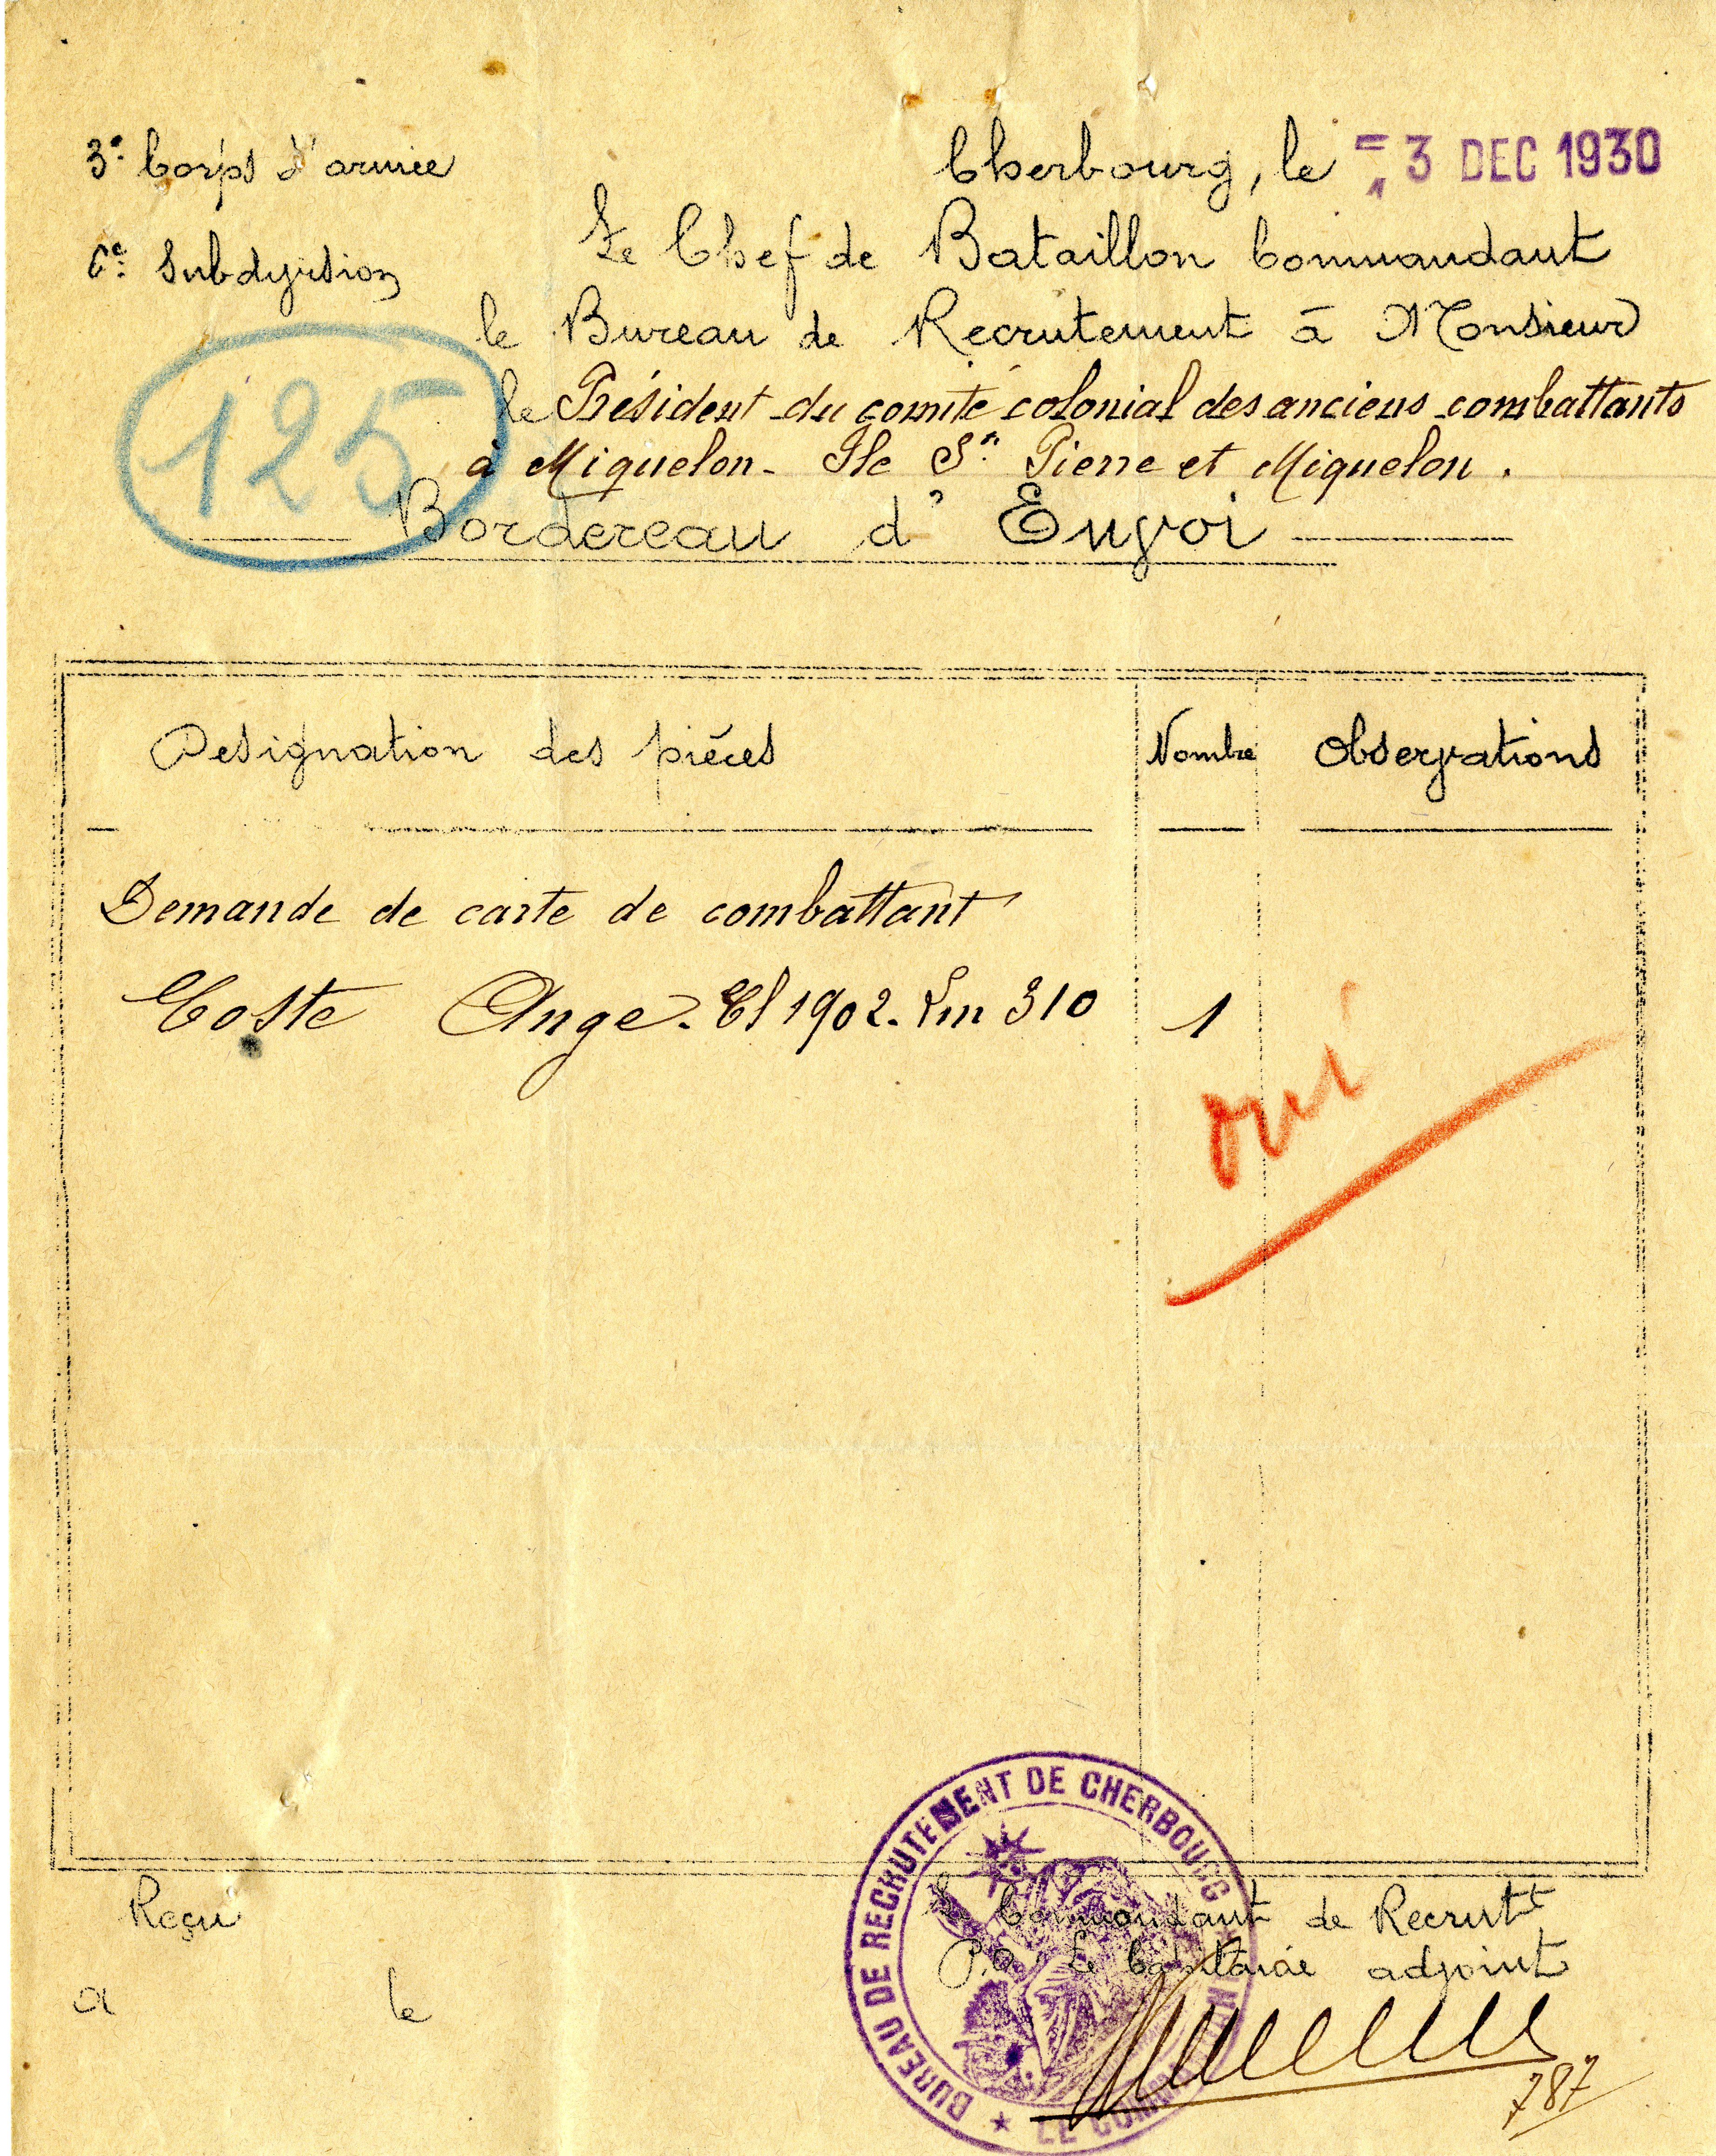 3e Corps d'armée
Cherbourg, le = 3 DEC 1930
6e Subdivision
Le Chef de Bataillon Commandant
le Bureau de Recrutement à Monsieur
le Président du comité colonial des anciens combattants
à Miquelon - Ile St Pierre et Miquelon.
125
Bordereau d'Envoi
Designation des pièces
Nombre
Observations
Demande de carte de combattant
Coste Ange. Cl 1902. Lm 310
1
oui
BUREAU DE RECRUTEMENT DE CHERBOURG
Reçu
Le Commandant de Recrutt
P.O. Le Capitaine adjoint
a le
787